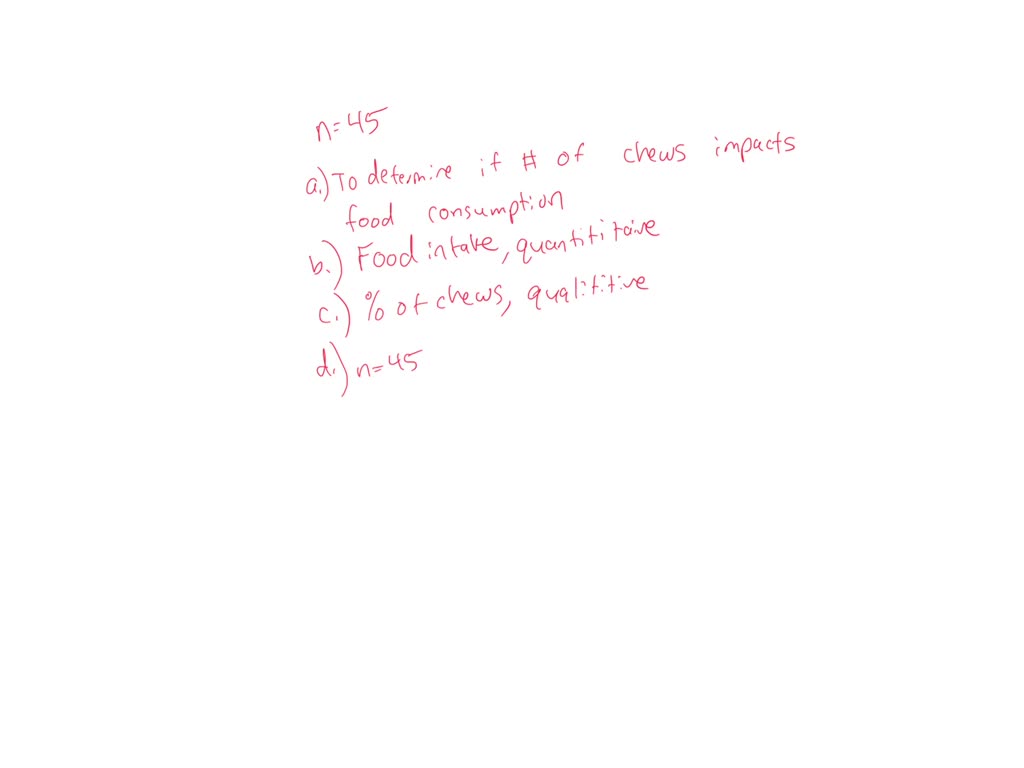 n=45
a.) To determine if # of chews impacts
food consumption
b.) Food intake, quantititaive
c.) % of chews, qualititive
d.) n=45